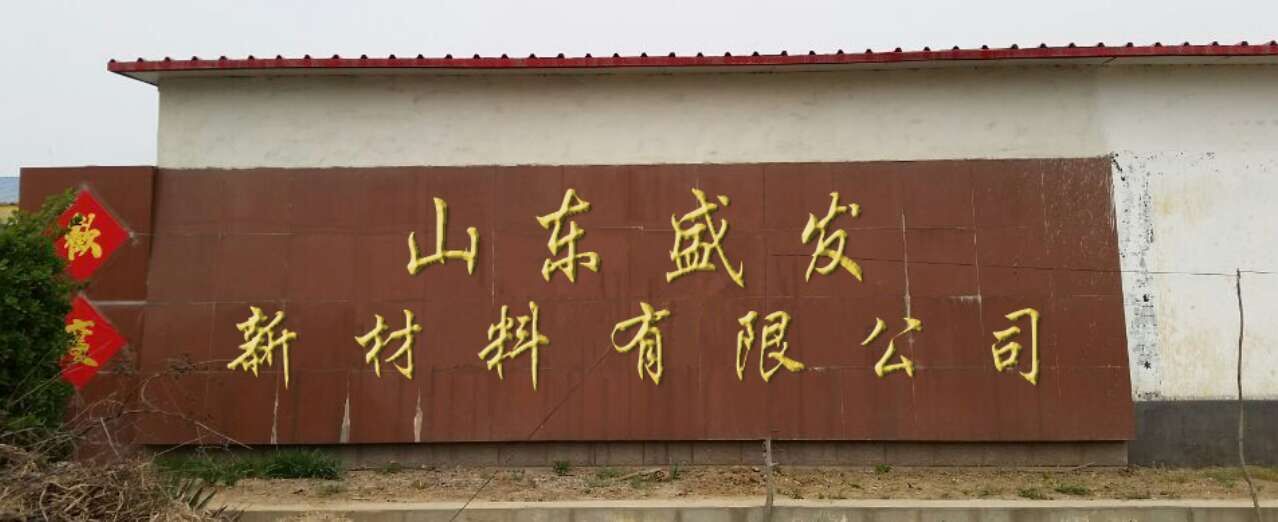 山东盛发
新材料有限公司